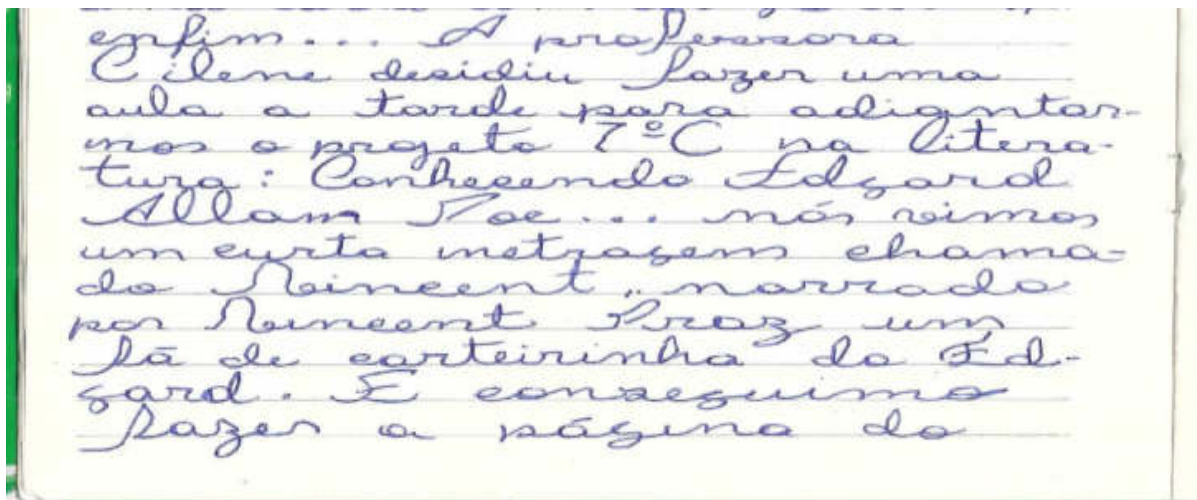 enfim... A professora
Cilene desidiu fazer uma
aula a tarde para adigntar-
mos o projeto 7ºC na litera-
tura: Conhecendo Edgard
Allam Poe... nós vimos
um curta metragem chama-
do Vincent, narrado
por Vincent Praz um
fã de carteirinha do Ed-
gard. E conseguimo
fazer a página do